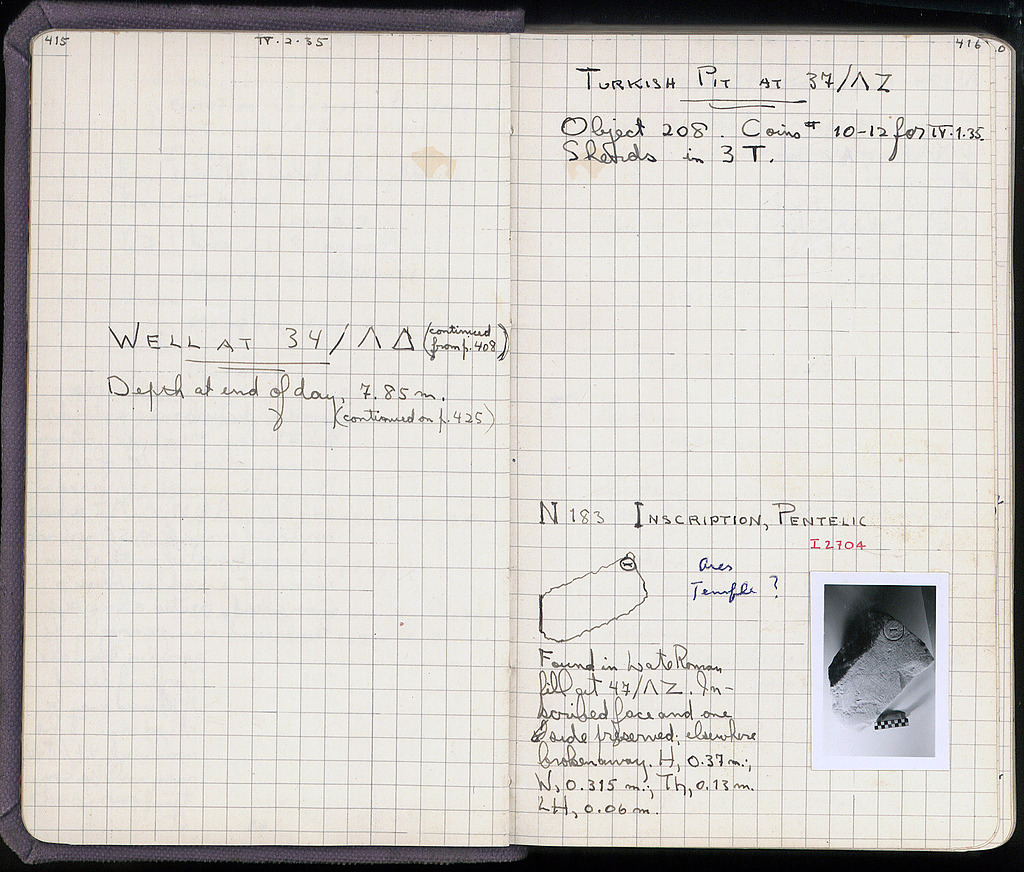 415
IV.2.35
WELL AT 34/ΛΔ (continued
from p. 408)
Depth at end of day, 7.85 m.
(continued on p. 425)
416
TURKISH PIT AT 37/ΛΖ
Object 208. Coins # 10-12 for IV.1.35.
Sherds in 3 T.
N 183 INSCRIPTION, PENTELIC
I 2704
Ares
Temple ?
Found in Late Roman
fill at 47/ΛΖ. In-
scribed face and one
side preserved; elsewhere
broken away. H, 0.37 m.;
W, 0.315 m.; Th, 0.13 m.
LH, 0.06 m.